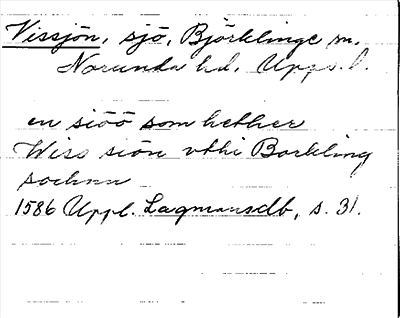 Vissjön, sjö, Björklinge sn.
Norunda hd, Upps. l.
en siöö som hether
Wiss siön vthi Borkling
sochnn
1586 Uppl. Lagmansdb, s. 31.